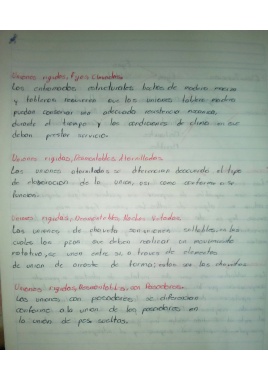 Uniones rigidas, Fijas Clavadas
Los entramados estructurales hechos de madera maciza
y tableros requieren que las uniones tablero madera
puedan contener una adecuada resistencia mecanica,
durante el tiempo y las condiciones de clima en que
deban prestar servicio.
Uniones rigidas, Desmontables Atornilladas
Las uniones atornilladas se diferencian deacuerdo al tipo
de elaboracion de la union, asi como conforme a su
funcion.
Uniones rigidas, Desmontables, Hechas
Las uniones de chaveta son uniones soltables, en las
cuales las pzas que deben realizar un movimiento
rotativo, se unen entre si a traves de elementos
de union de arrastre de forma; estos son las chavetas
Uniones rigidas, Desmontables, con Pasadores.
Las uniones con pasadores se diferencian
conforme a la union de los pasadores en
la union de pzs sueltas.